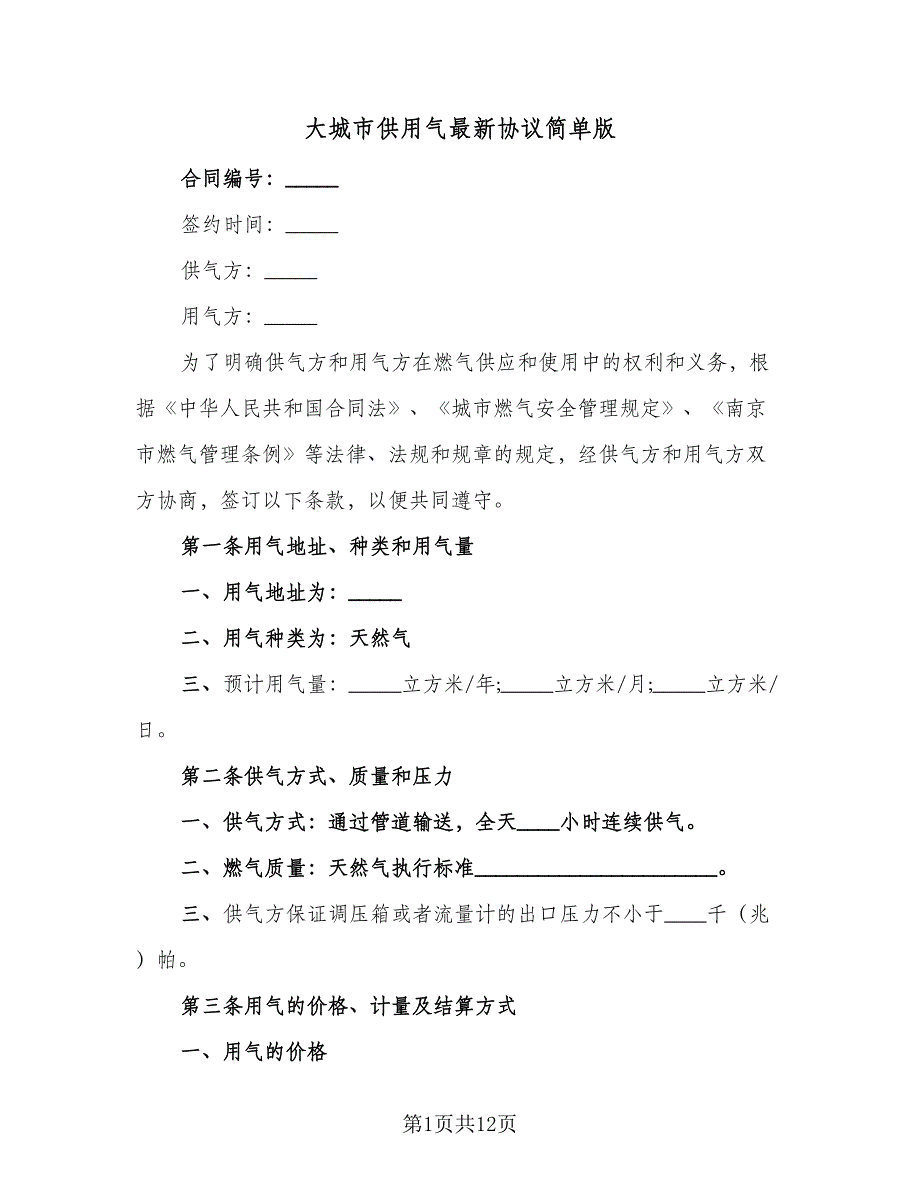 大城市供用气最新协议简单版
合同编号：_____
签约时间：_____
供气方：_____
用气方：_____
为了明确供气方和用气方在燃气供应和使用中的权利和义务，根
据《中华人民共和国合同法》、《城市燃气安全管理规定》、《南京
市燃气管理条例》等法律、法规和规章的规定，经供气方和用气方双
方协商，签订以下条款，以便共同遵守。
第一条用气地址、种类和用气量
一、用气地址为：_____
二、用气种类为：天然气
三、预计用气量：_____立方米/年;_____立方米/月;_____立方米/
日。
第二条供气方式、质量和压力
一、供气方式：通过管道输送，全天____小时连续供气。
二、燃气质量：天然气执行标准_______________________。
三、供气方保证调压箱或者流量计的出口压力不小于____千（兆
）帕。
第三条用气的价格、计量及结算方式
一、用气的价格
第1页共12页